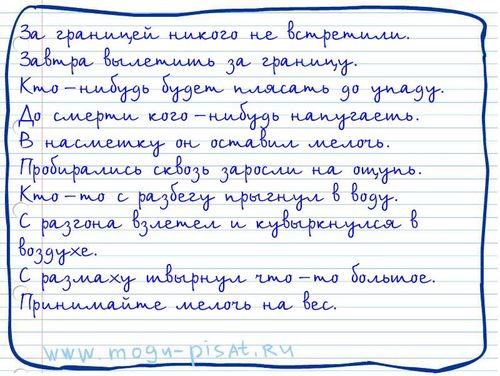 За границей никого не встретили.
Завтра вылетить за границу.
Кто-нибудь будет плясать до упаду.
До смерти кого-нибудь напугаеть.
В насметку он оставил мелочь.
Пробирались сквозь заросли на ощупь.
Кто-то с разбегу прыгнул в воду.
С разгона взлетел и кувыркнулся в
воздухе.
С размаху швырнул что-то большое.
Принимайте мелочь на вес.
www.mogu-pisat.ru